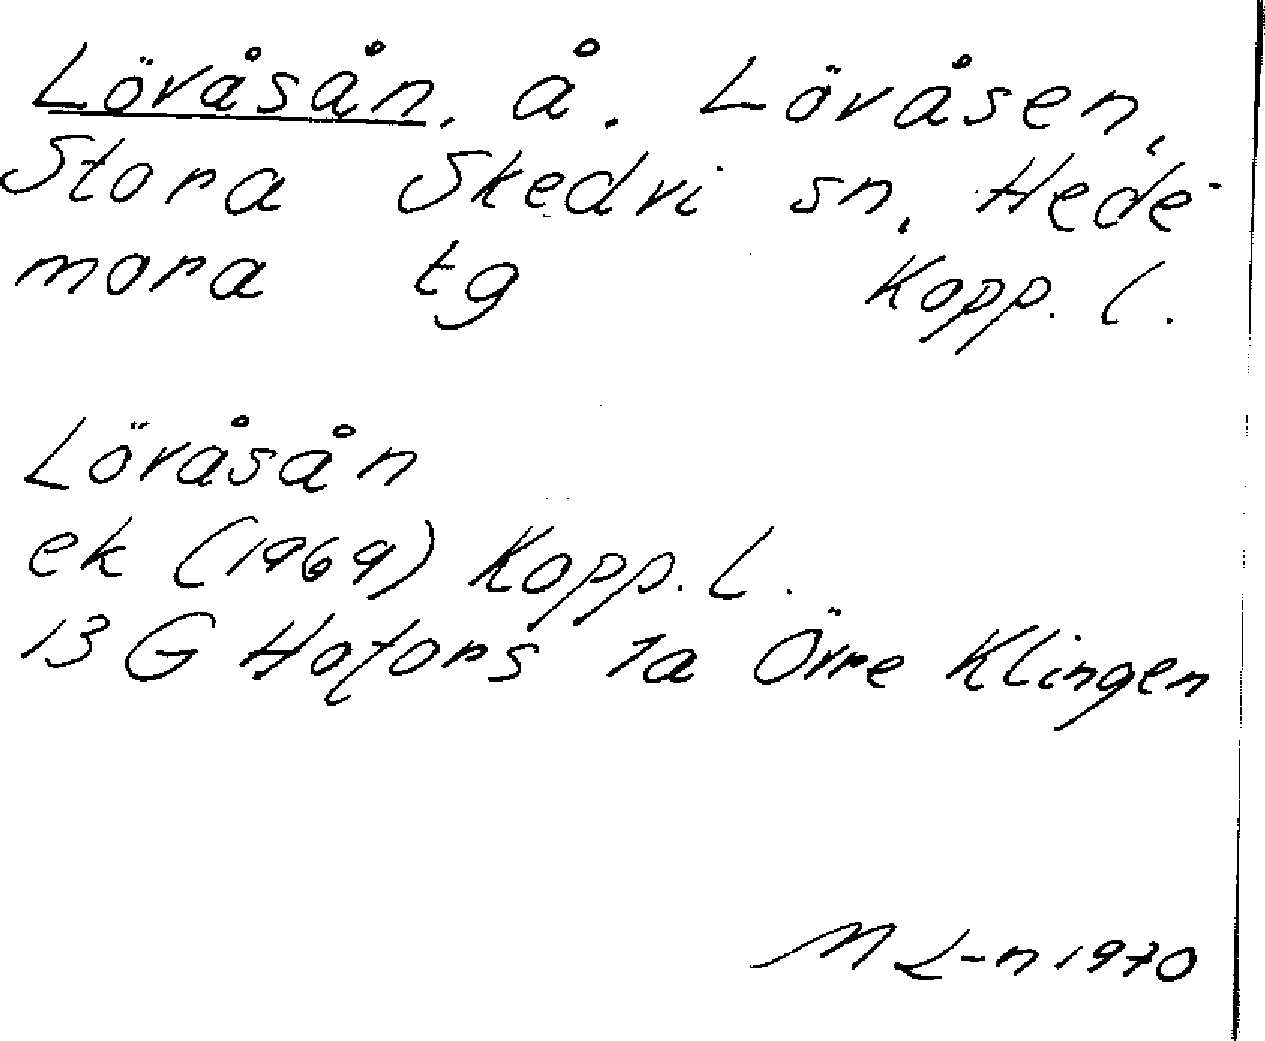 Lövåsån. å. Lövåsen,
Stora Skedvi sn, Hede-
mora tg Kopp. l.
Lövåsån
ek (1969) Kopp. l.
13 G Hofors 1a Övre Klingen
M L-n 1970